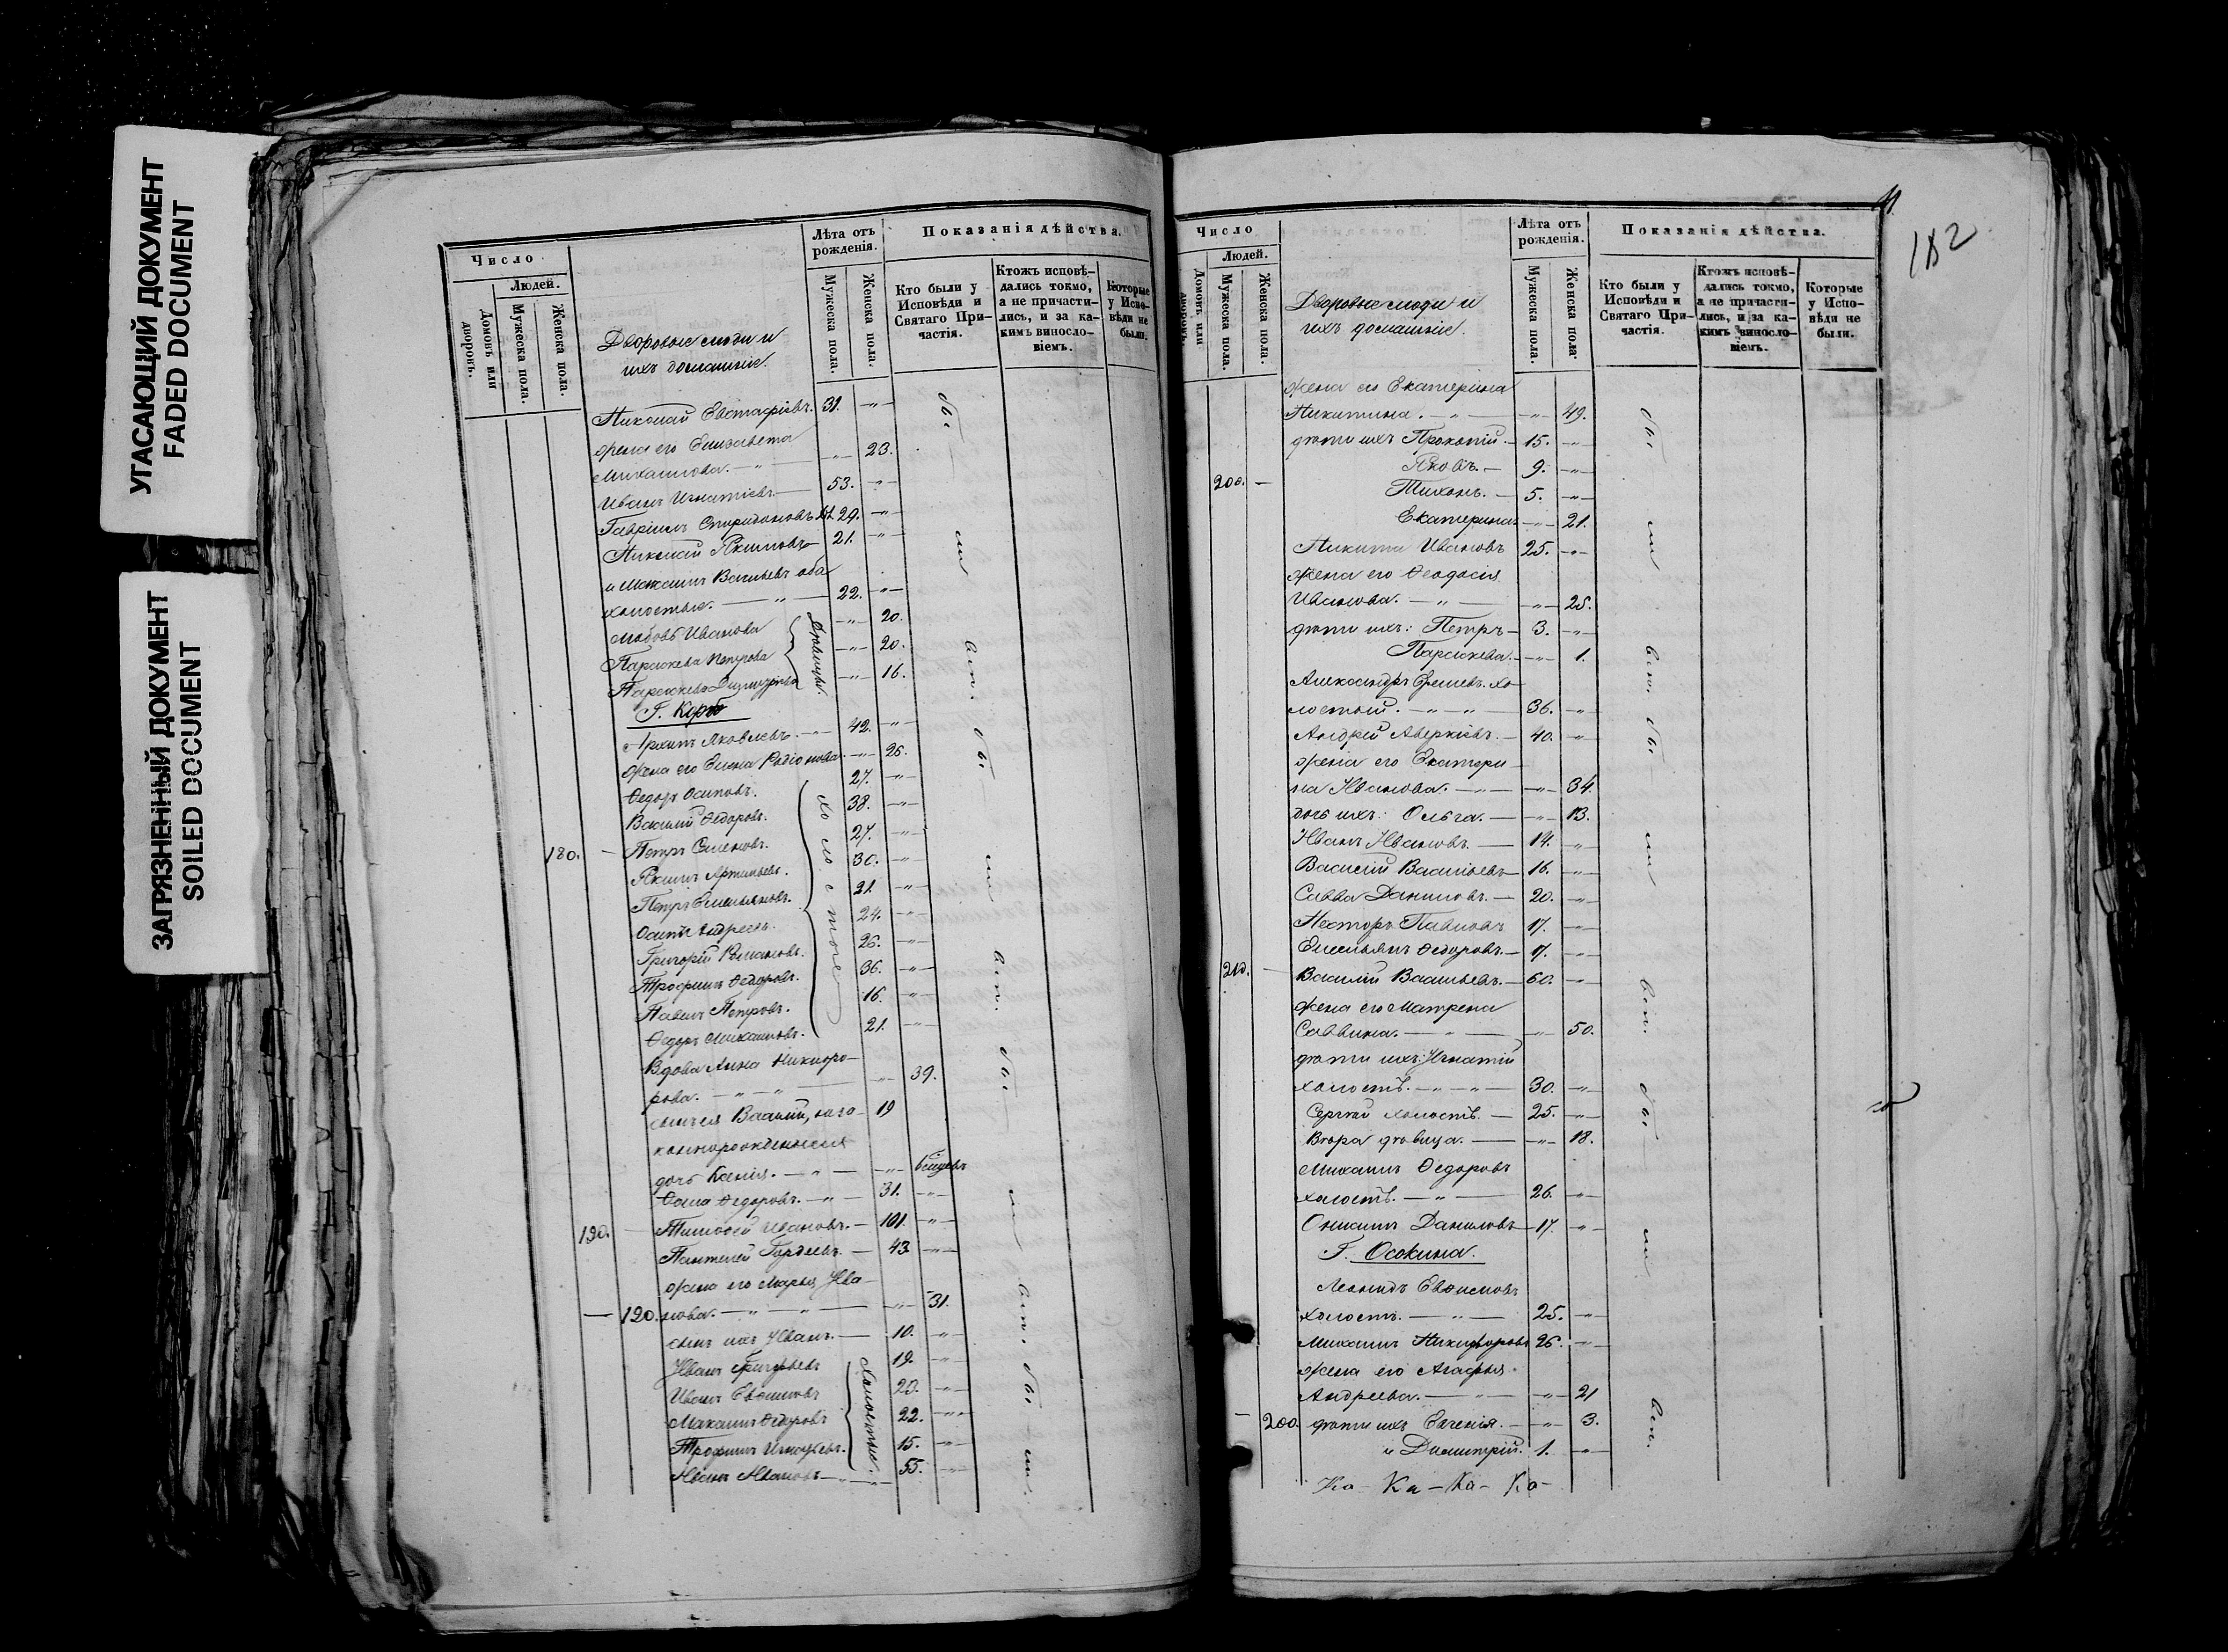 УГАСАЮЩИЙ ДОКУМЕНТ
FADED DOCUMENT
ЗАГРЯЗНЕННЫЙ ДОКУМЕНТ
SOILED DOCUMENT
Число
Людей.
Домовъ или дворовъ.
Мужеска пола.
Женска пола.
Дворовые люди и
ихъ домашніе.
Лѣта отъ рожденія.
Мужеска пола.
Женска пола.
Показанія дѣйства.
Кто были у Исповѣди и Святаго Причастія.
Ктожъ исповѣдались токмо, а не причастились, и за какимъ винословіемъ.
Которые у Исповѣди не были.
Николай Евстафіевъ. 31. -"-
жена его Елизавета
Михаилова. -"- -"- 23.
Иванъ Игнатіевъ. 53. -"-
Гавріилъ Спиридоновъ 29. -"-
Николай Якимовъ 21. -"-
и Михаилъ Васильевъ оба
холостые. -"- 22. -"-
Любовь Иванова -"- 20.
Параскева Петрова -"- 20.
Параскева Димитріева -"- 16.
дѣвицы.
Г. Корбе
Архипъ Яковлевъ. 42. -"-
жена его Елена Родіонова -"- 26.
Ѳедоръ Осиповъ. 27. -"-
Василій Ѳедоровъ. 38. -"-
180. Петръ Семеновъ. 27. -"-
Якимъ Артемьевъ. 30. -"-
Петръ Емельяновъ. 21. -"-
Осипъ Андреевъ. 24. -"-
Григорій Романовъ. 26. -"-
Трофимъ Ѳедоровъ. 36. -"-
Павелъ Петровъ. 16. -"-
Ѳедоръ Михаиловъ. 21. -"-
холостые
Вдова Анна Никифо-
рова. -"- -"- 39.
сынъ ея Василій, неза- 19
коннорожденныя
дочь Ксенія. -"- -"- 6 мѣсяцевъ
Ѳома Ѳедоровъ. -"- 31. -"-
190. Тимофей Ивановъ. 101. -"-
Пантелей Гордеевъ. 43. -"-
жена его Марья Ива-
120. нова. -"- -"- 31.
сынъ ихъ Иванъ. 10. -"-
Иванъ Григорьевъ 19. -"-
Иванъ Евѳимовъ 20. -"-
Михаилъ Ѳедоровъ 22. -"-
Трофимъ Игнатьевъ. 15. -"-
холостые.
Иванъ Ивановъ 55. -"-
бы
ли
вси.
бы
ли
вси.
бы
ли
вси.
бы
ли
182
Число
Людей.
Домовъ или дворовъ.
Мужеска пола.
Женска пола.
Дворовые люди и
ихъ домашніе.
Лѣта отъ рожденія.
Мужеска пола.
Женска пола.
Показанія дѣйства.
Кто были у Исповѣди и Святаго Причастія.
Ктожъ исповѣдались токмо, а не причастились, и за какимъ винословіемъ.
Которые у Исповѣди не были.
жена его Екатерина
Никитина. -"- -"- 49.
дѣти ихъ Прокопій 15. -"-
Яковъ. 9. -"-
200. Тихонъ. 5. -"-
Екатерина -"- 21.
Никита Ивановъ 25. -"-
жена его Ѳеодосія
Иванова. -"- -"- 25.
дѣти ихъ: Петръ 3. -"-
Параскева. -"- 1.
Александръ хо-
лостый. -"- -"- 36. -"-
Андрей Аверкіевъ. 40. -"-
жена его Екатери
на Иванова. -"- -"- 34.
дочь ихъ: Ольга. -"- 13.
Иванъ Ивановъ. 14. -"-
Василій Васильевъ 16. -"-
Савва Даниловъ. 20. -"-
Несторъ Павловъ 17. -"-
Емельянъ Ѳедоровъ. 17. -"-
210. Василій Васильевъ. 60. -"-
жена его Матрена
Саввина. -"- -"- 50.
дѣти ихъ: Игнатій
холостъ. -"- -"- 30. -"-
Сергѣй холостъ. 25. -"-
Вѣра дѣвица. -"- 18.
Михаилъ Ѳедоровъ
холостъ. -"- 26. -"-
Онисимъ Даниловъ 17. -"-
Г. Осокина.
Леонидъ Евѳимовъ
холостъ. -"- 25. -"-
Михаилъ Никифоровъ 26. -"-
жена его Агафья
Андреева. -"- -"- 21
200. дѣти ихъ Евгенія. -"- 3.
и Димитрій. 1. -"-
бы
ли
вси.
бы
ли
вси.
бы
ли
вси.
Ка - Ка - Ка - Ка -